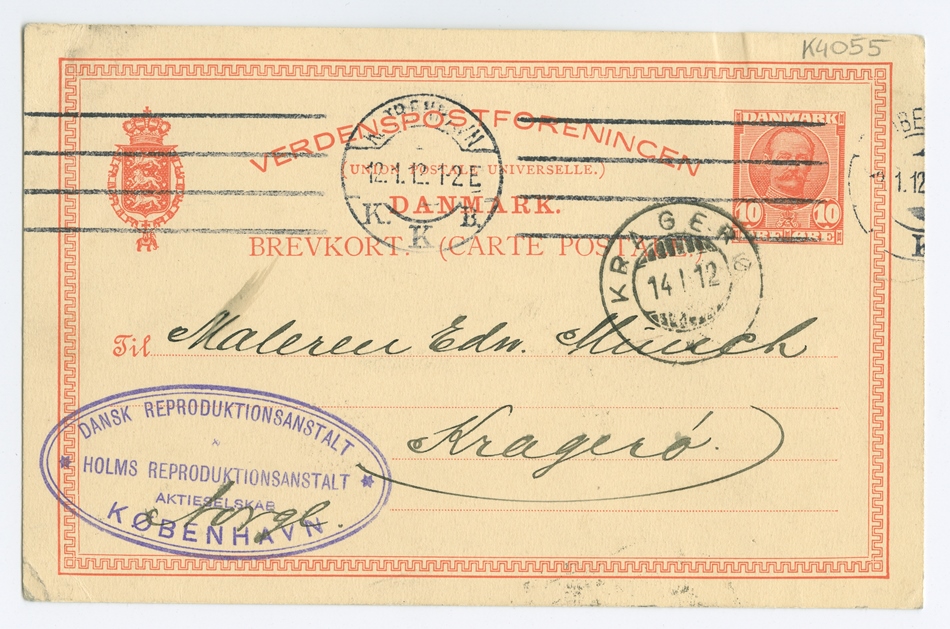 K4055
VERDENSPOSTFORENINGEN
(UNION POSTALE UNIVERSELLE.)
DANMARK.
BREVKORT. (CARTE POSTALE.)
DANMARK
10 10
ØRE ØRE
KJØBENHAVN
12.1.12. 1-2 E
K. B.
K
BE
12.1.12
K
KRAGERØ
14 I 12
Til Maleren Edv. Munch
Kragerø.
Norge.
DANSK REPRODUKTIONSANSTALT
HOLMS REPRODUKTIONSANSTALT
AKTIESELSKAB
KØBENHAVN